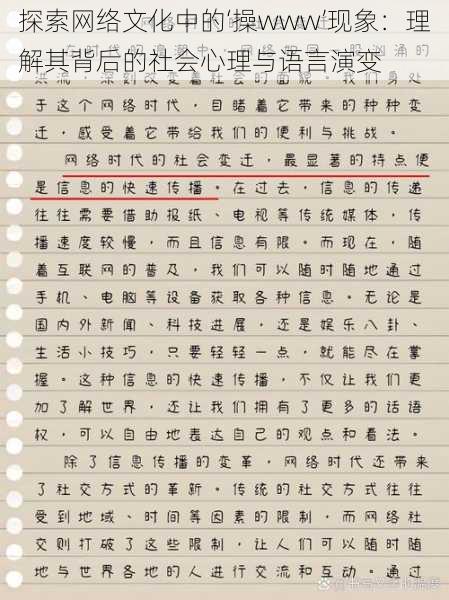 探索网络文化中的‘操wwww’现象：理
解其背后的社会心理与语言演变
洪流，深刻改变着社会的面貌。我们身处
于这个网络时代，目睹着它带来的种种变
迁，感受着它带给我们的便利与挑战。
网络时代的社会变迁，最显著的特点便
是信息的快速传播。在过去，信息的传递
往往需要借助报纸、电视等传统媒体，传
播速度较慢，而且信息有限。而现在，随
着互联网的普及，我们可以随时随地通过
手机、电脑等设备获取各种信息。无论是
国内外新闻、科技进展，还是娱乐八卦、
生活小技巧，只要轻轻一点，就能尽在掌
握。这种信息的快速传播，不仅让我们更
加了解世界，还让我们拥有了更多的话语
权，可以自由地表达自己的观点和看法。
除了信息传播的变革，网络时代还带来
了社交方式的革新。传统的社交方式往往
受到地域、时间等因素的限制，而网络社
交则打破了这些限制，让人们可以随时随
地与世界各地的人进行交流和互动。通过